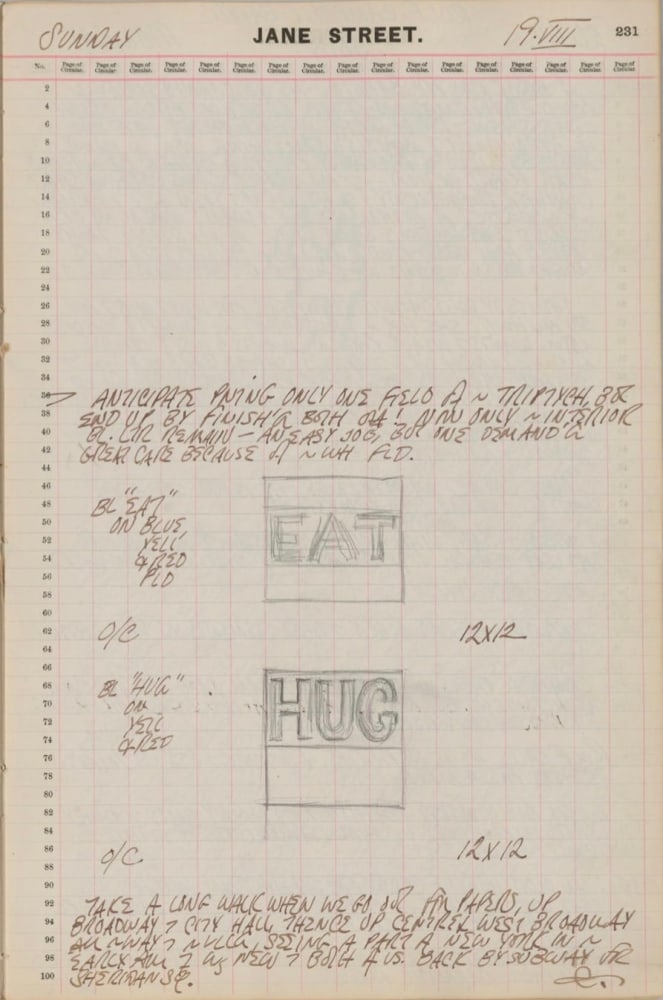 SUNDAY JANE STREET. 19·VIII 231
No. Page of Circular. Page of Circular. Page of Circular. Page of Circular. Page of Circular. Page of Circular. Page of Circular. Page of Circular. Page of Circular. Page of Circular. Page of Circular. Page of Circular. Page of Circular. Page of Circular. Page of Circular. Page of Circular. Page of Circular.
2
4
6
8
10
12
14
16
18
20
22
24
26
28
30
32
34
36 ANTICIPATE PNTING ONLY ONE FIELD ~ TRIPTYCH, BUT
38 END UP BY FINISH'G BOTH NOW ONLY ~ INTERIOR
40 REMAIN – AN EASY JOB, BUT ONE DEMAND'G
42 GREAT CARE BECAUSE ~ WH FLD.
44
46
48 BL "EAT"
50 ON BLUE
52 YELL
54 & RED
56 FLD
EAT
58
60
62 O/C 12X12
64
66
68 BL "HUG"
70 ON
72 YELL
74 & RED
HUG
76
78
80
82
84
86 O/C 12X12
88
90
92 TAKE A LONG WALK WHEN WE GO OUT FOR PAPERS, UP
94 BROADWAY CITY HALL THENCE UP CENTRE & WEST BROADWAY
96 ~ WAY ~ SEEING A PART NEW YORK IN ~
98 EARLY NEW BOTH US. BACK BY SUBWAY
100 SHERIDAN SQ.